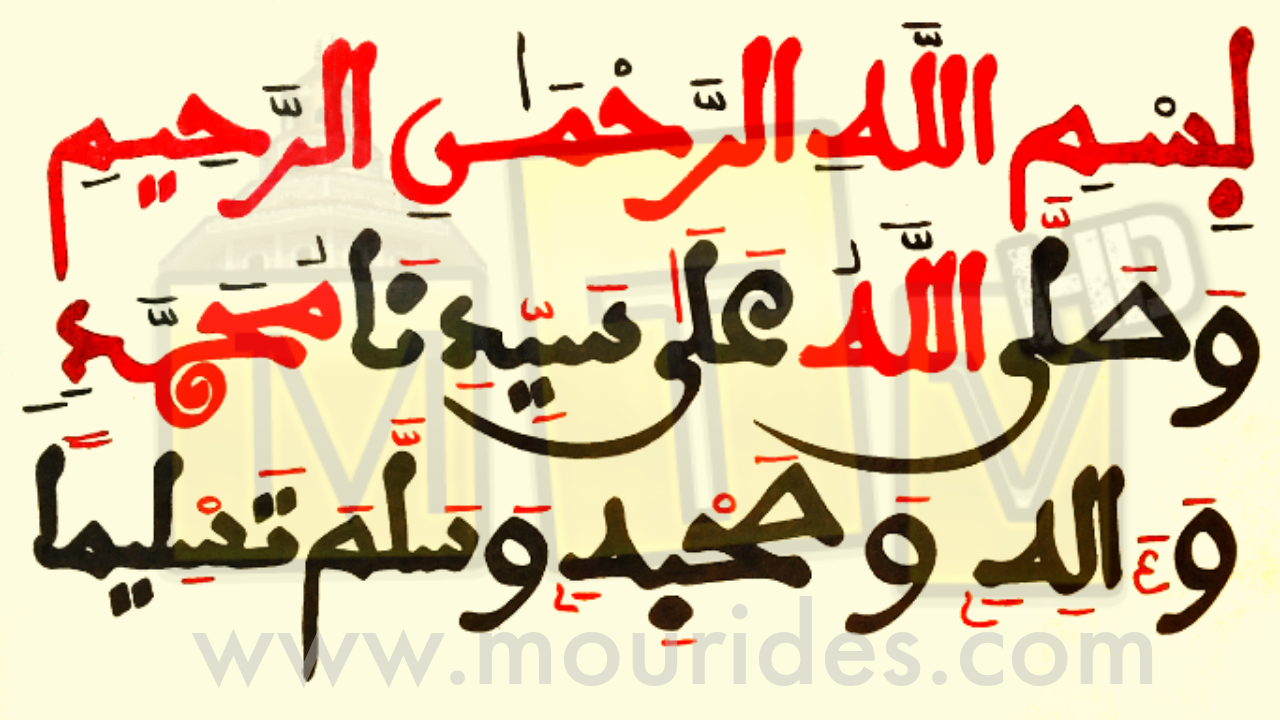 بِسْمِ اللَّهِ الرَّحْمَٰنِ الرَّحِيمِ
وَصَلَّى اللَّهُ عَلَى سَيِّدِنَا مُحَمَّدٍ
وَءَالِهِ وَصَحْبِهِ وَسَلَّمَ تَسْلِيمًا
MTV HD
www.mourides.com